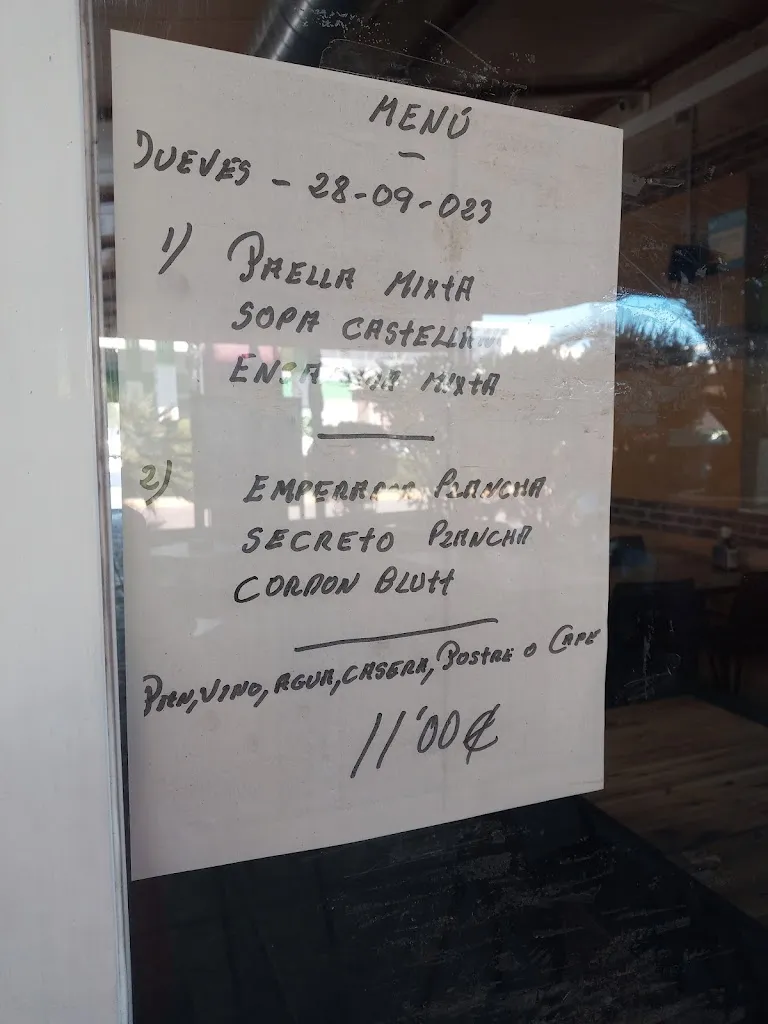 MENÚ
JUEVES - 28-09-023
1) PAELLA MIXTA
SOPA CASTELLANA
ENSALADA MIXTA
2) EMPERADOR PLANCHA
SECRETO PLANCHA
CORDON BLUTT
PAN, VINO, AGUA, CASERA, POSTRE O CAFE
11'00€